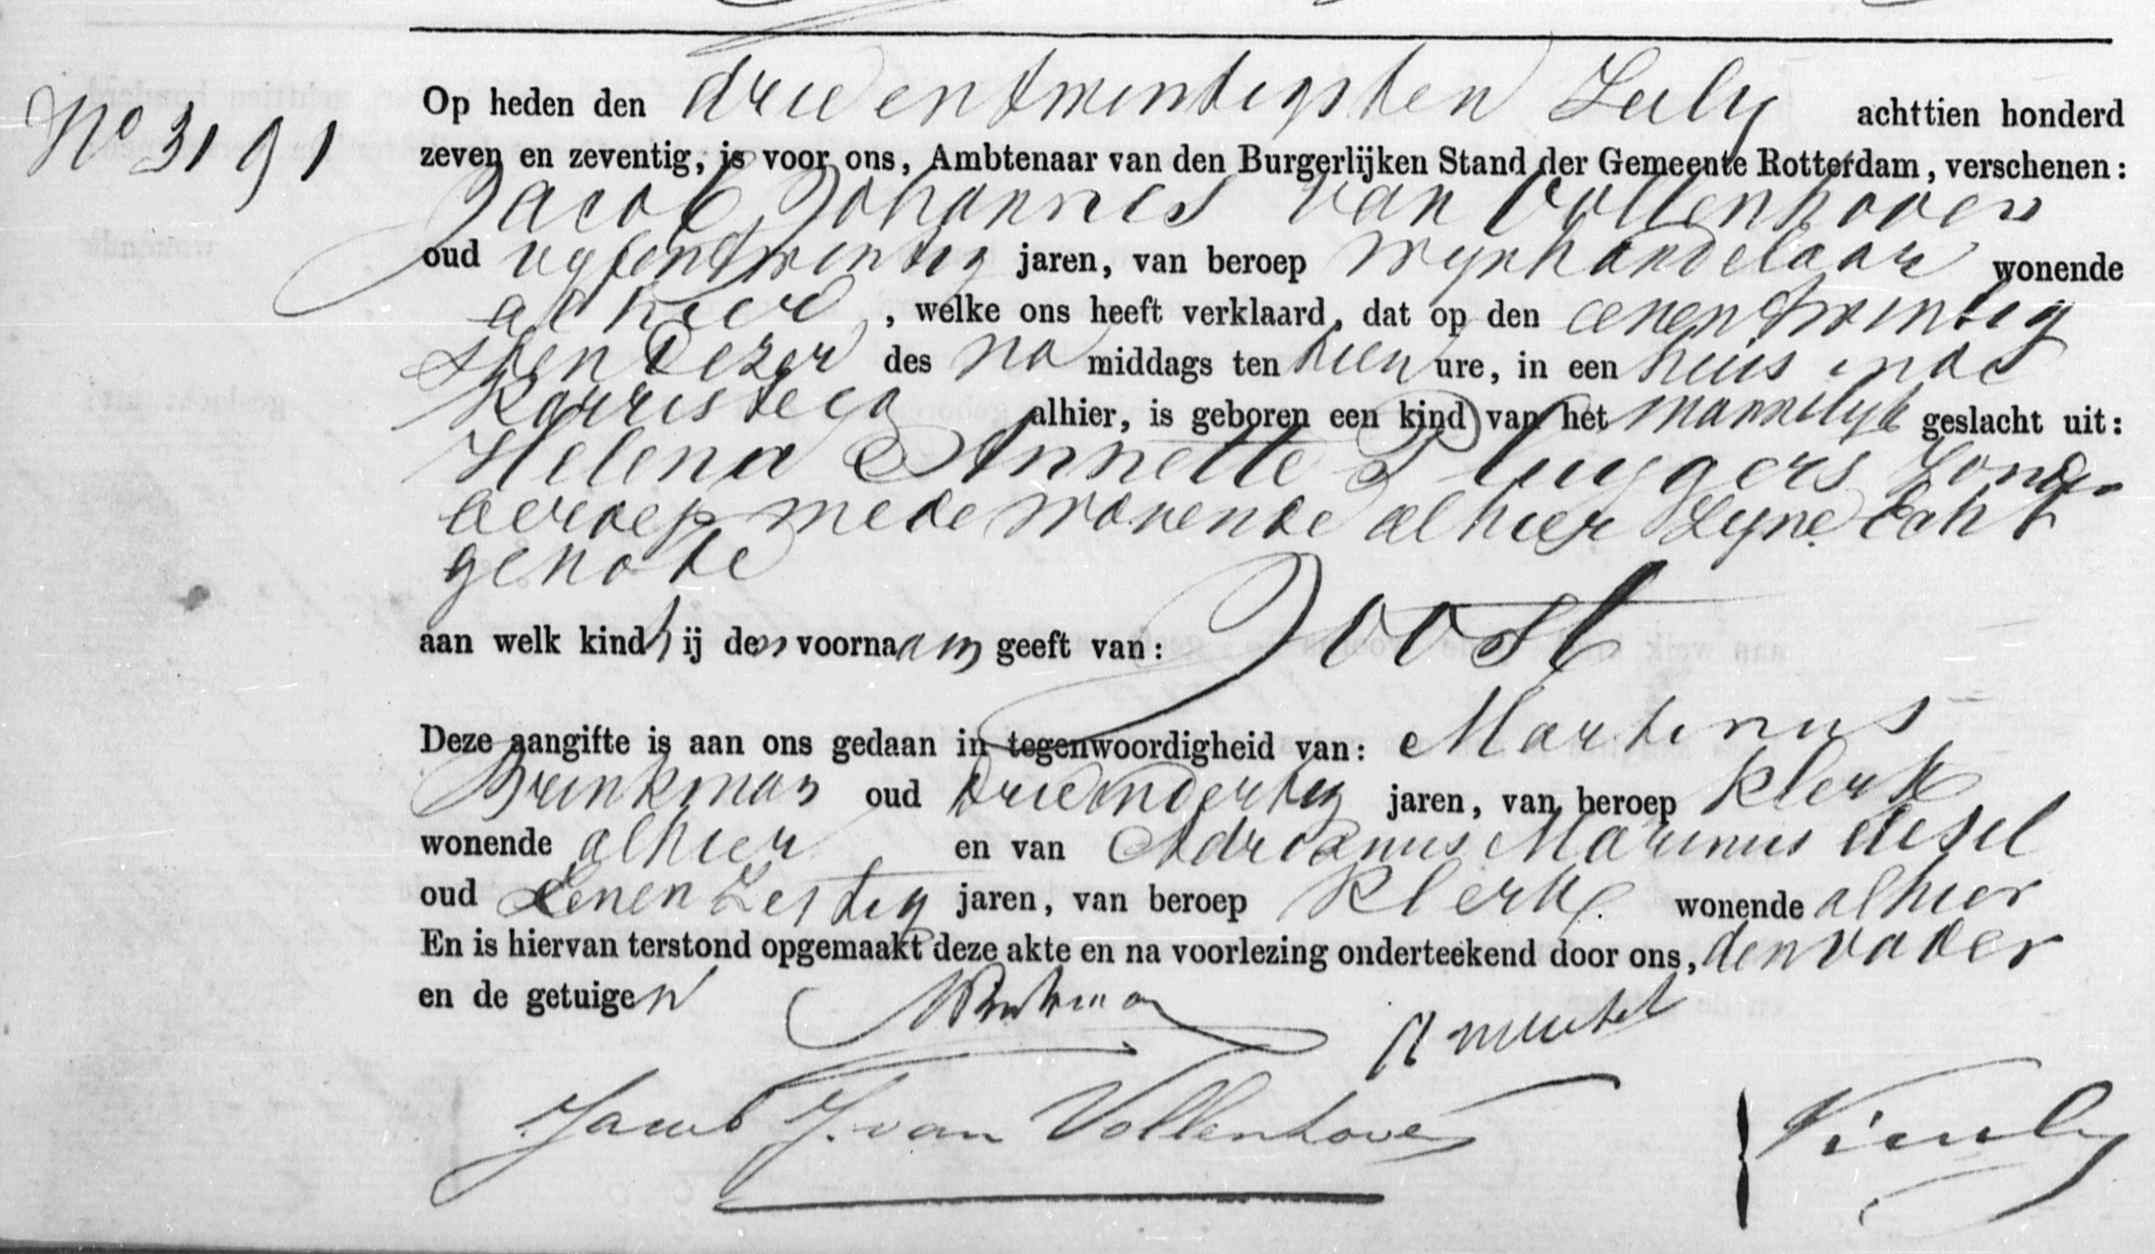 No 3191
Op heden den drieentwintigsten July achttien honderd
zeven en zeventig, is voor ons, Ambtenaar van den Burgerlijken Stand der Gemeente Rotterdam, verschenen:
Jacob Johannes van Vollenhoven
oud vyfentwintig jaren, van beroep wynhandelaar wonende
alhier, welke ons heeft verklaard, dat op den eenentwintig
sten dezer des na middags ten tien ure, in een huis in de
alhier, is geboren een kind van het mannelyk geslacht uit:
Helena Annette Pluygers zonder
beroep mede wonende alhier zyne Echt
genote
aan welk kind hij den voornaam geeft van: Joost
Deze aangifte is aan ons gedaan in tegenwoordigheid van: Martinus
Brinkman oud drieendertig jaren, van beroep klerk
wonende alhier en van Adrianus Marinus
oud Eenenzestig jaren, van beroep klerk wonende alhier
En is hiervan terstond opgemaakt deze akte en na voorlezing onderteekend door ons, den vader
en de getuigen
MBrinkman
Jacob J. van Vollenhoven